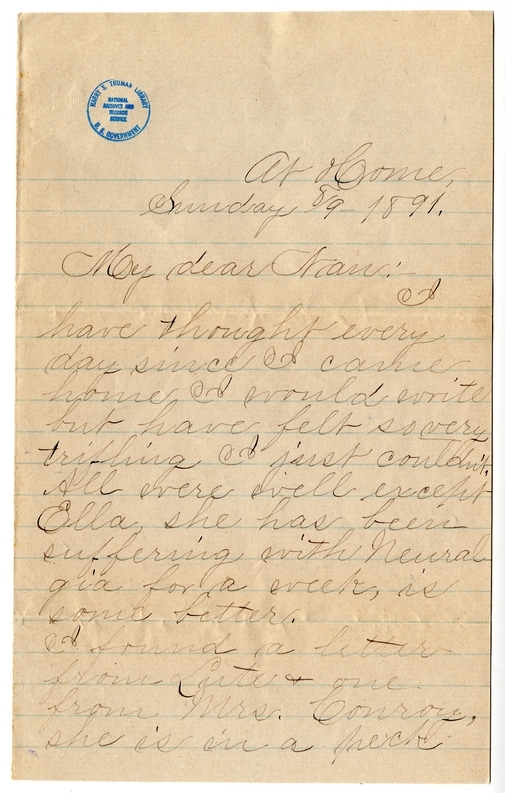 HARRY S. TRUMAN LIBRARY
NATIONAL
ARCHIVES AND
RECORDS
SERVICE
U. S. GOVERNMENT
At Home,
Sunday 8/9 - 1891.
My dear Nan:
I
have thought every
day since I came
home I would write
but have felt so very
trifling I just couldn't.
All were well except
Ella, she has been
suffering with Neural-
gia for a week, is
some better.
I found a letter
from Lute & one
from Mrs. Conroy,
she is in a peck